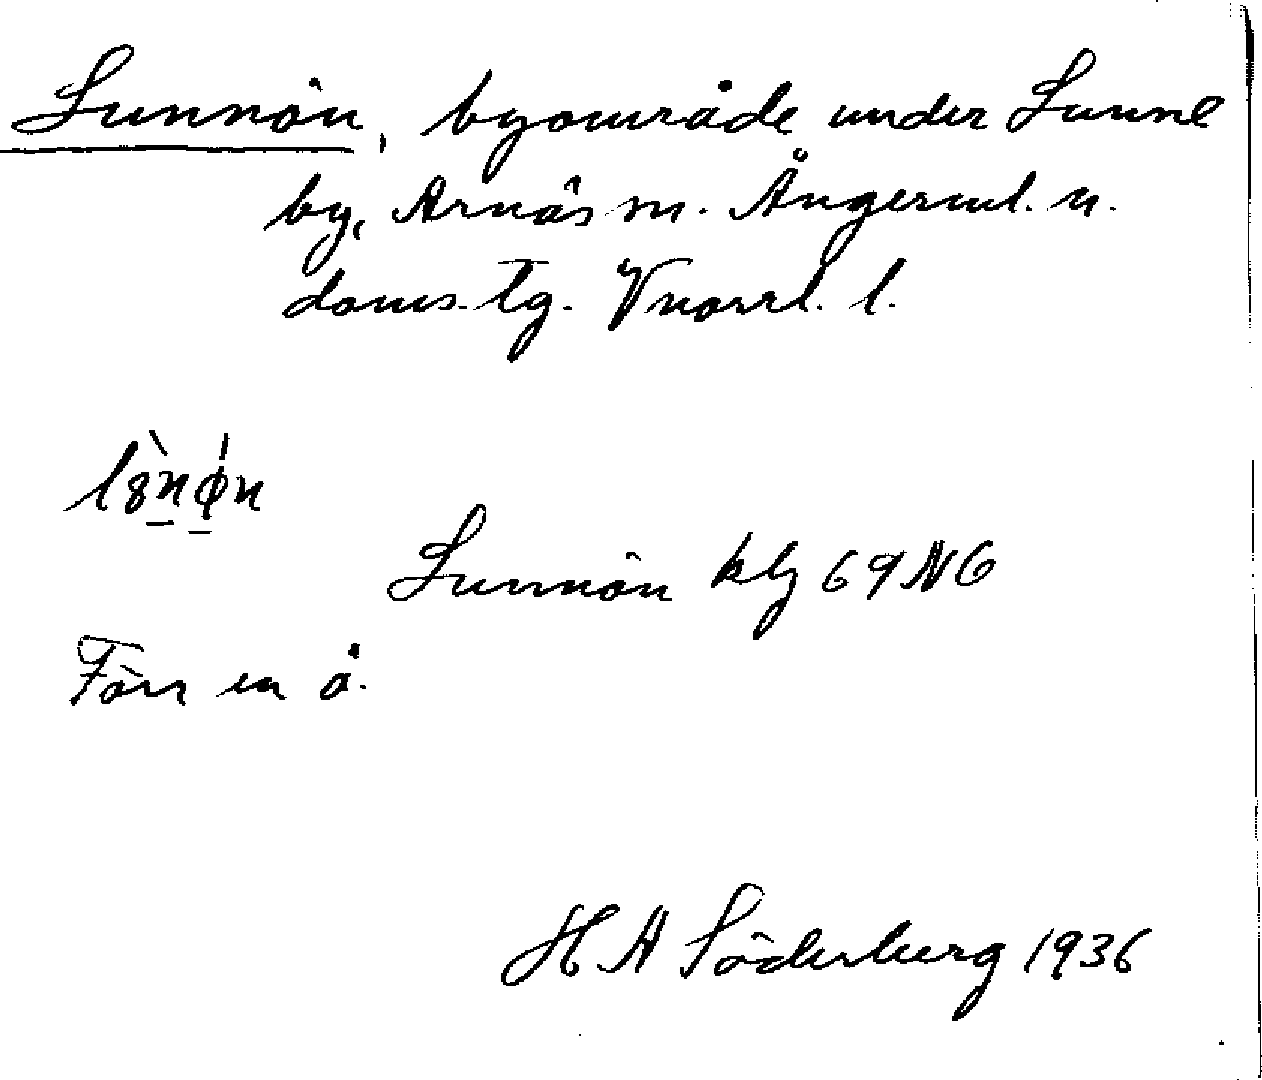 Lunnön, byområde under Lunne
by, Arnäs sn. Ångerml. n.
doms. tg. Vnorrl. l.
Lunnön kbg 69 NG
Förr en ö.
H A Söderberg 1936